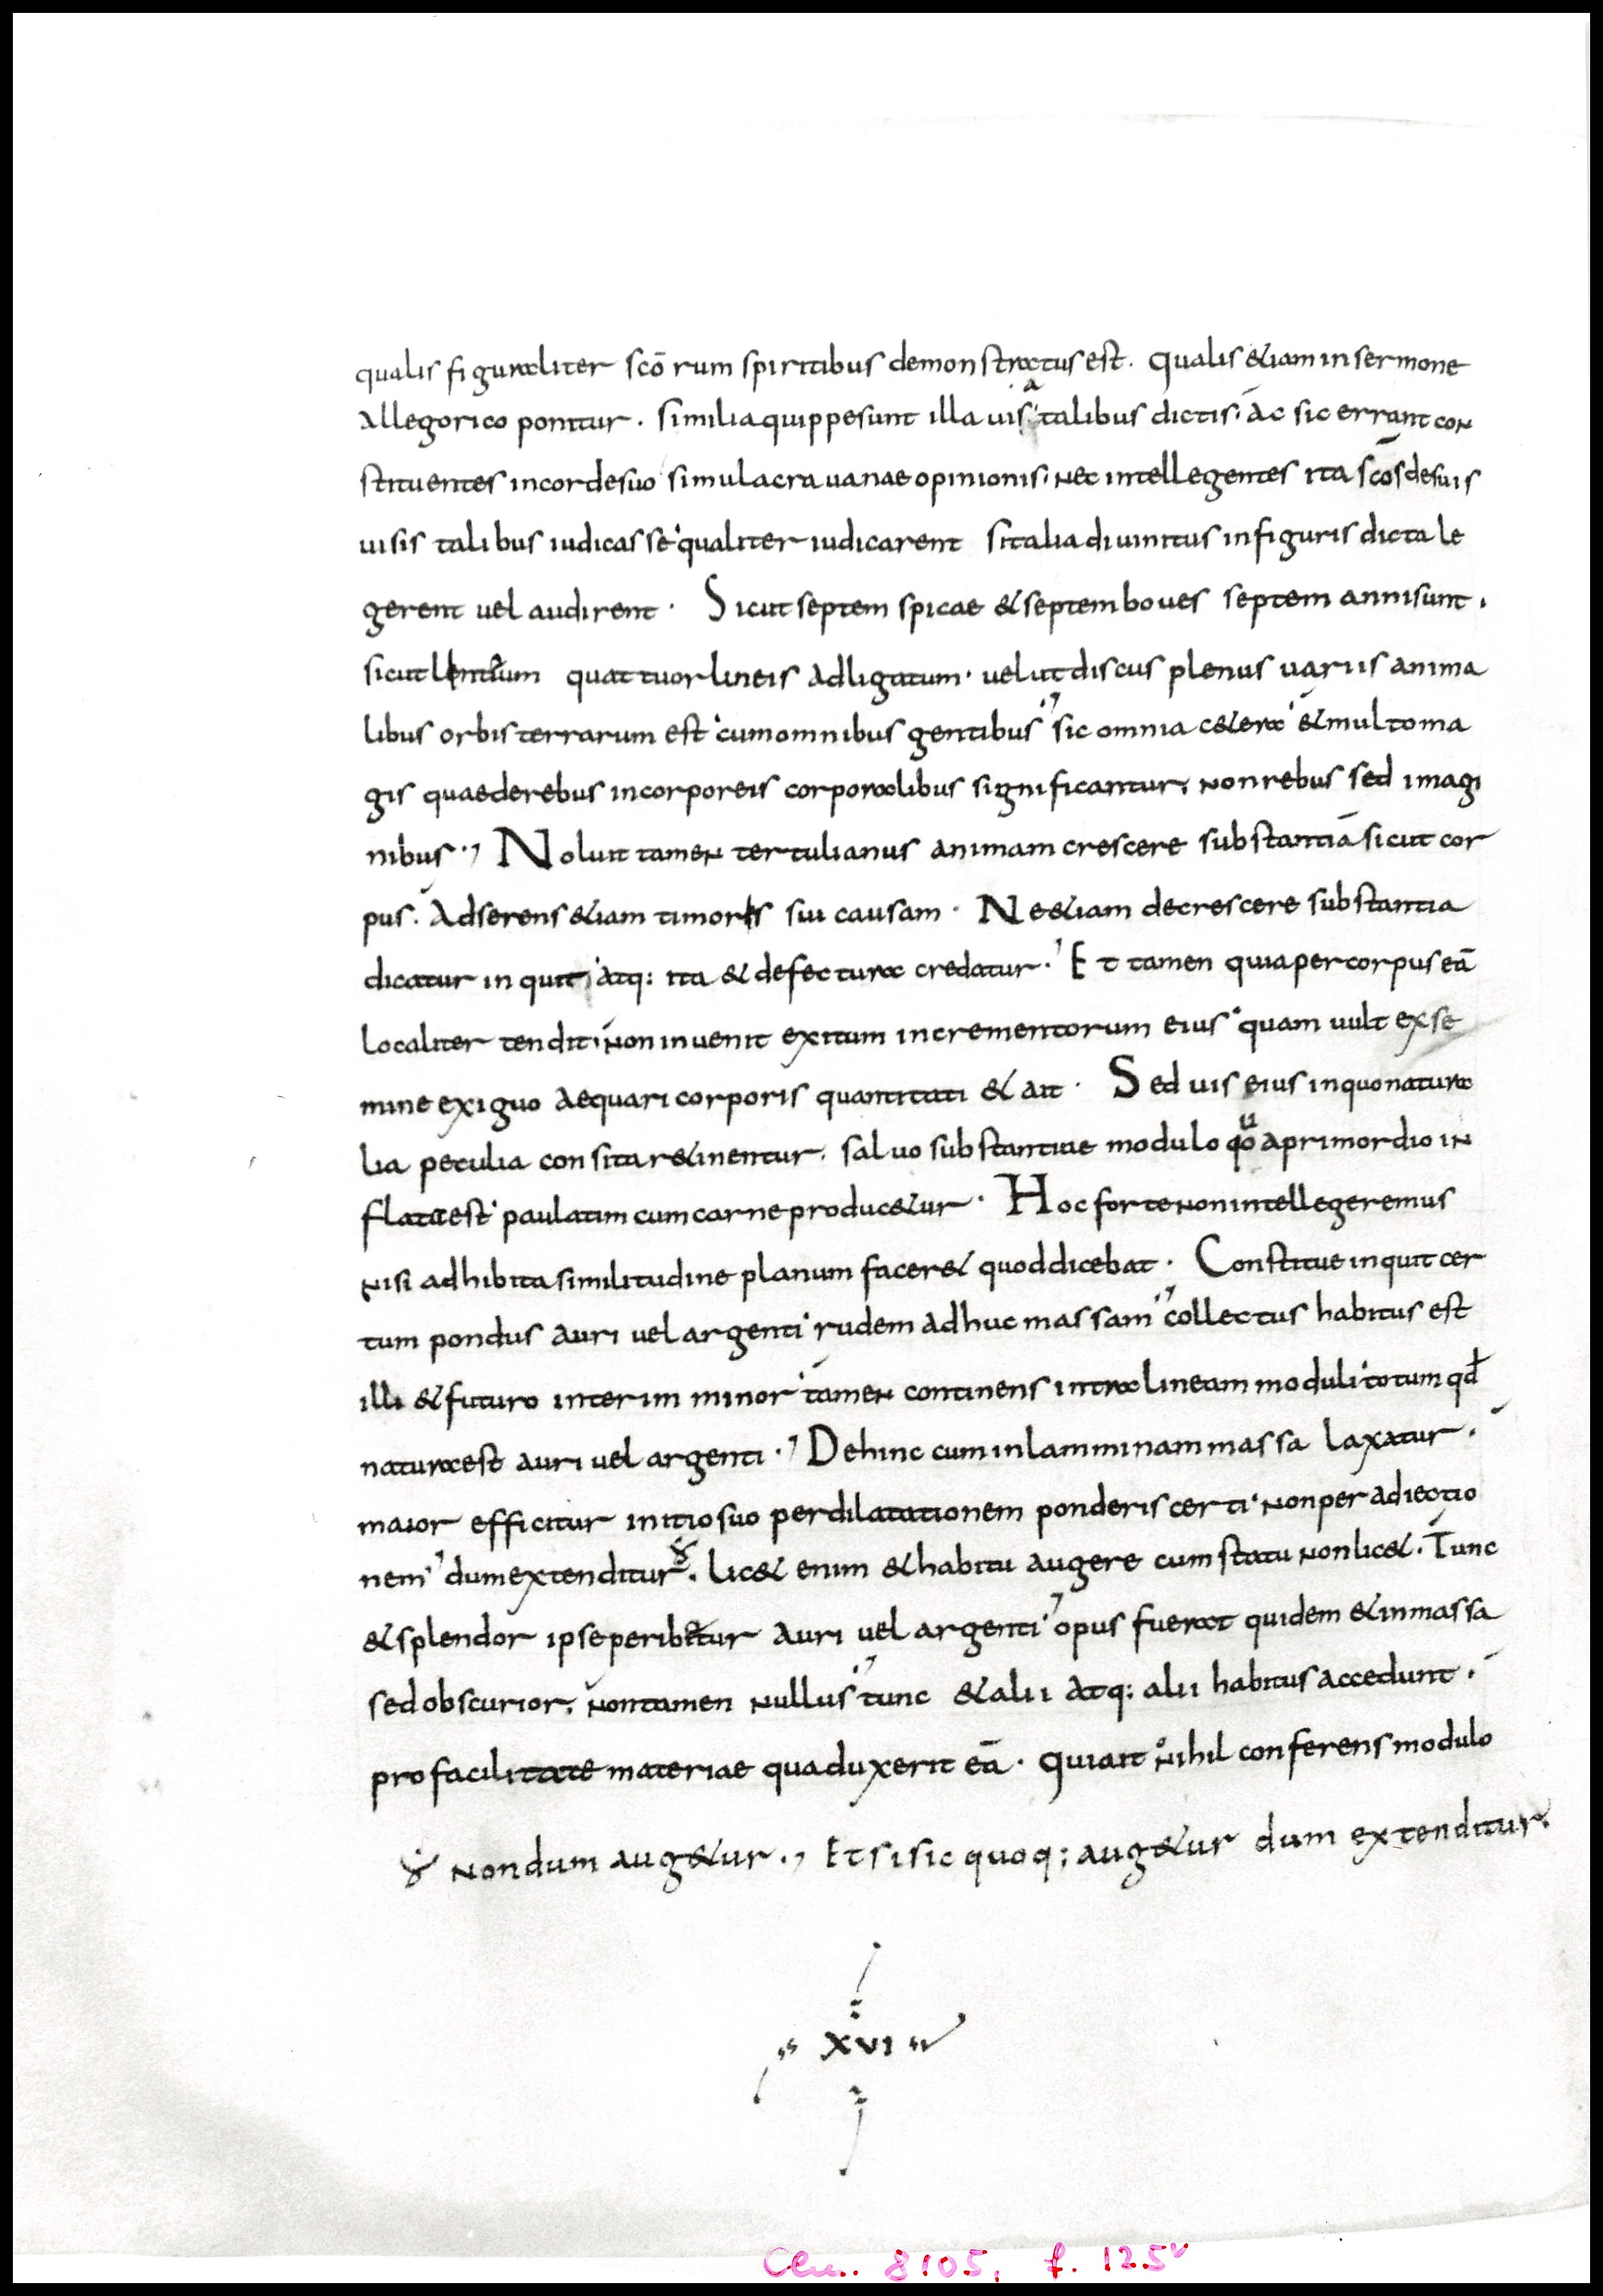 qualis figuraliter scōrum spiritibus demonstratus est. qualis &iam in sermone
allegorico ponitur. similia quippe sunt illa uisa talibus dictis. ac sic errant con
stituentes in corde suo simulacra uanae opinionis. nec intellegentes ita scōs de suis
uisis talibus iudicasse qualiter iudicarent si talia diuinitus in figuris dicta le
gerent uel audirent. Sicut septem spicae & septem boues septem anni sunt.
sicut quattuor lineis adligatum. uelut discus plenus uariis anima
libus orbis terrarum est cum omnibus gentibus sic omnia c&era & multo ma
gis quae de rebus incorporeis corporalibus significantur, non rebus sed imagi
nibus., Noluit tamen tertulianus animam crescere substantiā sicut cor
pus. Adserens &iam timoris sui causam. Ne &iam decrescere substantia
dicatur inquit, atq: ita & defectura credatur. Et tamen quia per corpus eā
localiter tendit. non inuenit exitum incrementorum eius quam uult ex se
mine exiguo aequari corporis quantitati & ait. Sed uis eius in quo natura
lia peculia consita r&inentur. saluo substantiae modulo quo a primordio in
flata est paulatim cum carne produc&ur. Hoc forte non intellegeremus
nisi adhibita similitudine planum facer& quod dicebat. Constitue inquit cer
tum pondus auri uel argenti rudem adhuc massam collectus habitus est
illi & futuro interim minor tamen continens intra lineam moduli totum qđ
natura est auri uel argenti., Dehinc cum in lamminam massa laxatur.
maior efficitur initio suo per dilatationem ponderis certi non per adiectio
nem dum extenditur. lic& enim & habitu augere cum statu non lic&. Tunc
& splendor ipse peribetur auri uel argenti opus fuerat quidem & in massa
sed obscurior, non tamen nullus tunc & alii atq: alii habitus accedunt.
pro facilitate materiae qua duxerit eā. quia it nihil conferens modulo
nondum aug&ur., Etsi sic quoq; aug&ur dum extenditur.
XVI
Clm. 8105, f. 125v